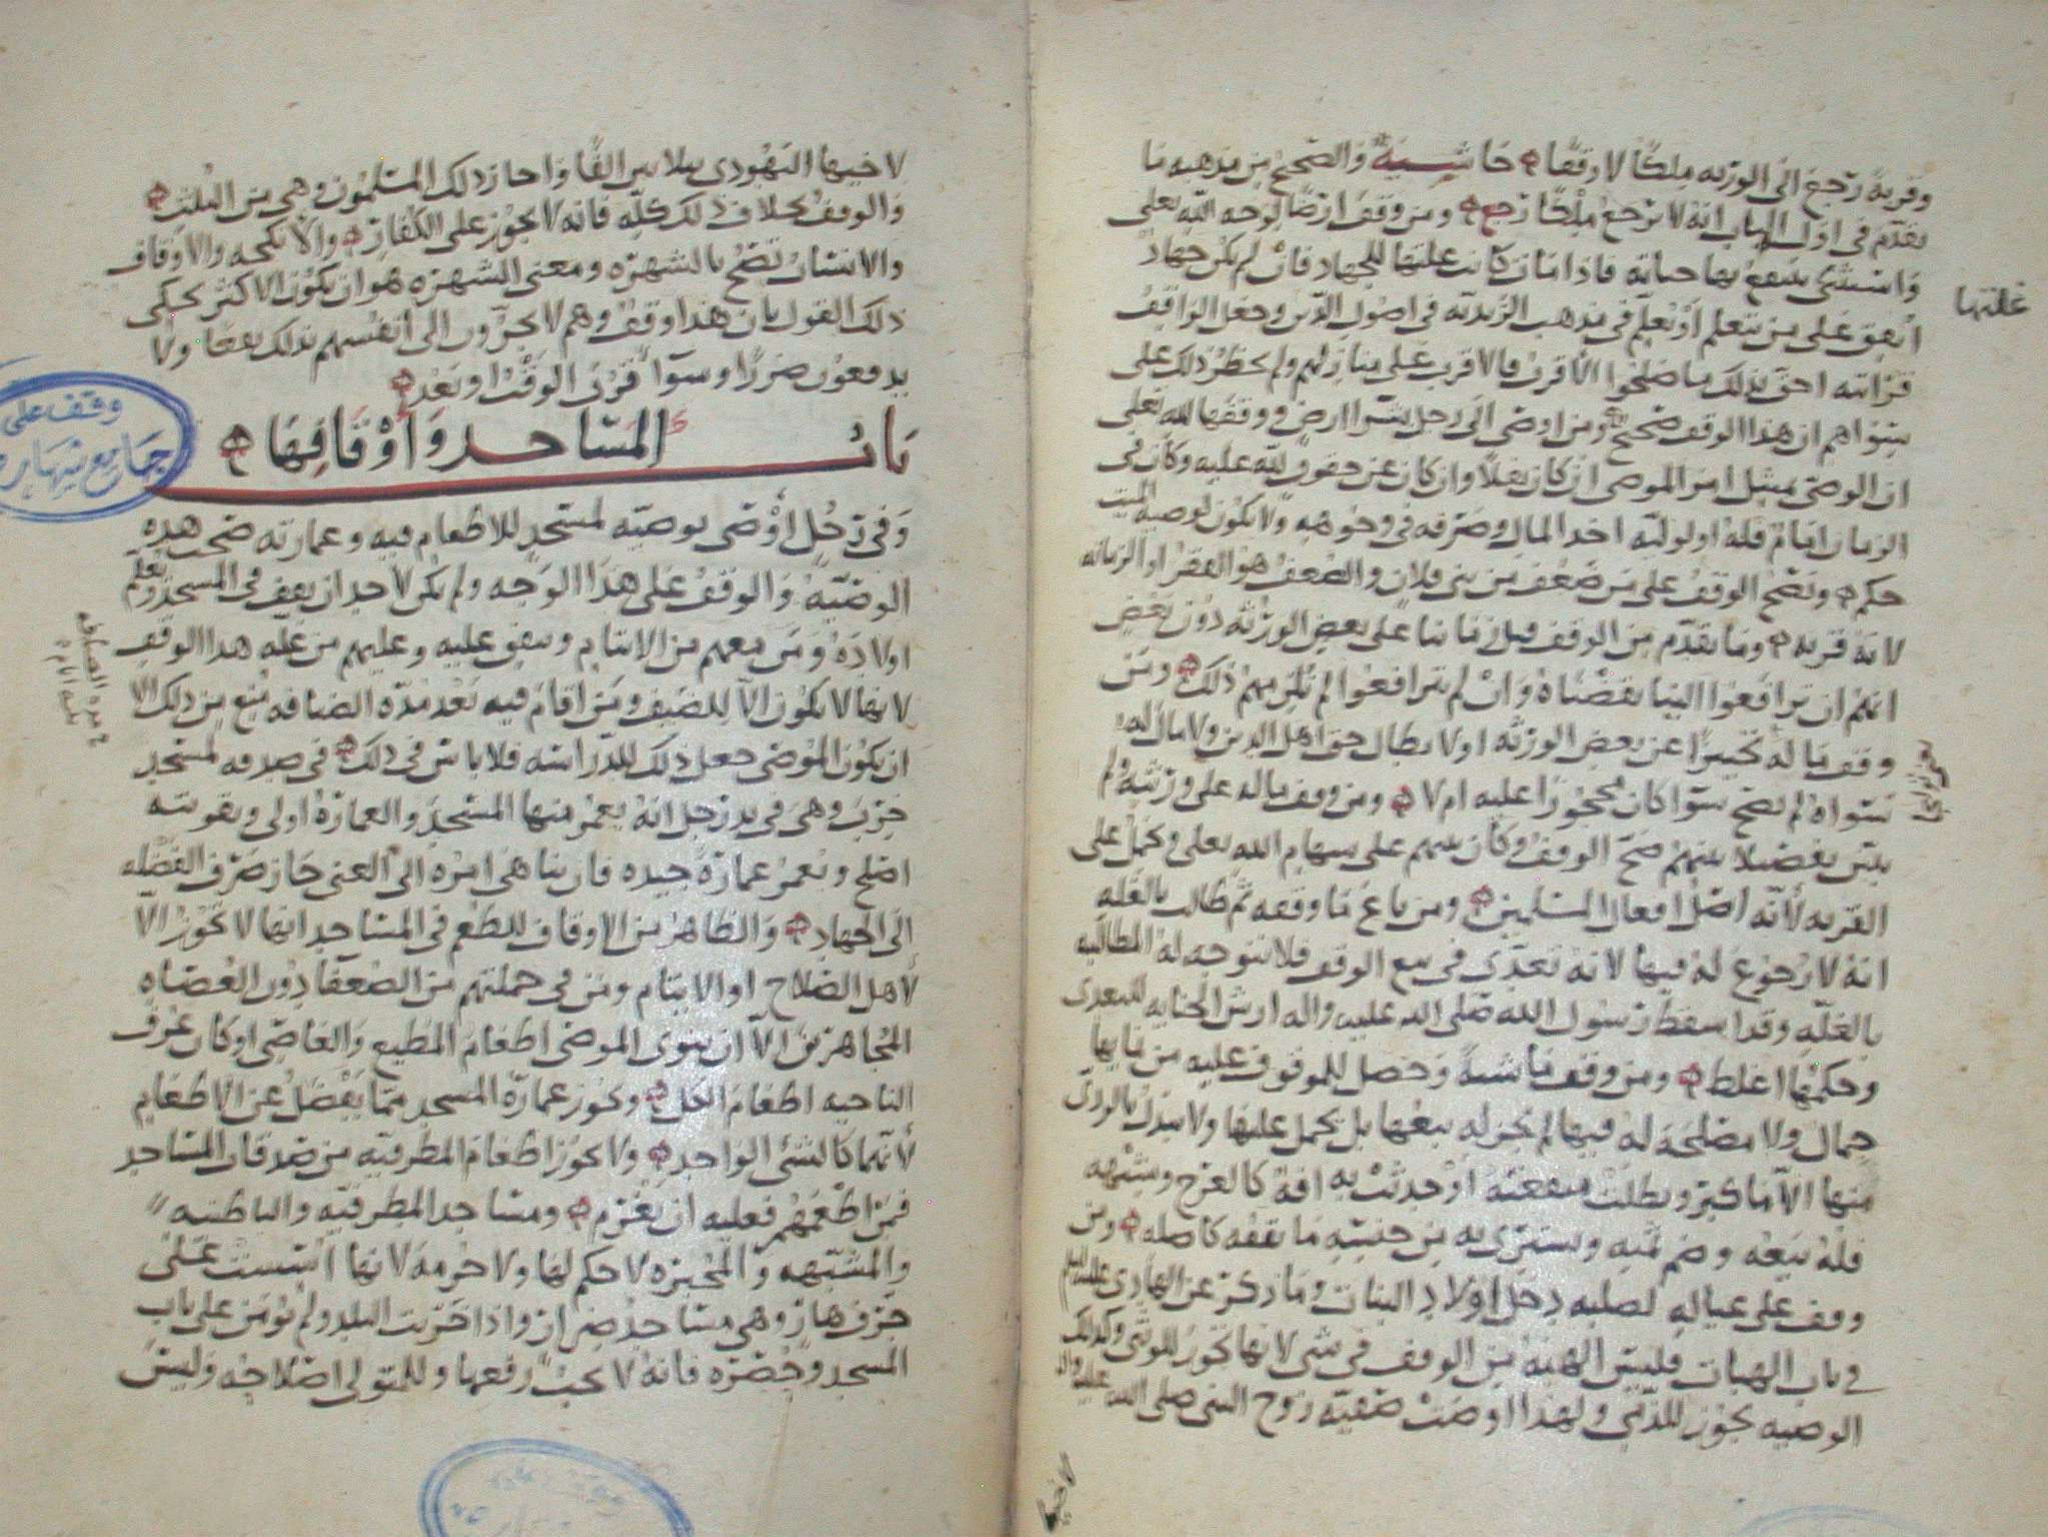 وقربة رجع الى الورثه ملكًا لا وقفًا حاشية والصحيح من مذهبه ما
تقدم فى اول الباب انه لا يرجع ملكًا رجع ومن وقف ارضًا لوجه الله تعلى
واستثنى ينتفع بها حياته فاذا مات كانت غلتها للجهاد فان لم يكن جهاد
غلتها
انفق على من يتعلم او يعلم فى مذهب الزيديه فى اصول الدين وجعل الواقف
قرابته احق بذلك ما صلحوا الاقرب فالاقرب على منازلهم ولم يحظر ذلك على
سواهم ان هذا الوقف صحيح ومن اوصى الى رجل بشرا ارض ووقفها لله تعلى
ان الوصى يمتثل امر الموصى ان كان نفلًا وان كان عن حقوق لله عليه وكان فى
الزمان امام فله او لوليه اخذ المال وصرفه فى وجوهه ولا يكون لوصيه الميت
حكم ويصح الوقف على من ضعف من بنى فلان والضعف هو الفقر او الزمانه
لانه قربه وما تقدم من الوقف قبل زماننا على بعض الورثه دون بعض
انهم ان ترافعوا الينا نقضناه وان لم يترافعوا لم نلزمهم ذلك ومن
وقف ماله تحيزًا عن بعض الورثه او لابطال حق اهل الدين ولا مال له
سواه لم يصح سوا كان محجورًا عليه ام لا ومن وقف ماله على ورثته ولم
يبين تفضيلا بينهم صح الوقف وكان بينهم على سهام الله تعلى وحمل على
القربه لانه اصل افعال المسلمين ومن باع ما وقفه ثم طالب بالغله
انه لا رجوع له فيها لانه تعدى فى بيع الوقف فلا تتوجه له المطالبه
بالغله وقد اسقط رسول الله صلى الله عليه واله ارش الجنايه للتعدى
وحكمها اغلظ ومن وقف ماشيةً وحصل للموقوف عليه من نمايها
جمال ولا مصلحة له فيها لم يجز له بيعها بل يحمل عليها ولا يبدل بالولدى
منها الا ما كبر وبطلت منفعته او حدثت به افة كالعرج وشبهه
فله بيعه وضم ثمنه ويشترى به من جنسه ما يقفه كاصله ومن
وقف على عياله لصلبه دخل اولاد البنات وما ذكر عن الهادى عليه السلم
فى باب الهبات فليس الهبه من الوقف فى شى لانها تجوز للوثنى وكذلك
الوصيه تجوز للذمى ولهذا اوصت صفيه زوج النبى صلى الله عليه واله
لاخيها
لاخيها اليهودى بثلاثين الفًا واجاز ذلك المسلمون وهى من الثلث
والوقف بخلاف ذلك كله فانه لا يجوز على الكفار والانكحه والاوقاف
والانساب تصح بالشهره ومعنى الشهره هو ان يكون الاكثر يحكى
ذلك القول بان هذا وقف وهم لا يجرون الى انفسهم بذلك نفعًا ولا
يدفعون ضررًا وسوآ قرب الوقت او بعد
باب المساجد واوقافها
وفى رجل اوصى بوصيه لمسجد للاطعام فيه وعمارته صحت هذه
الوصيه والوقف على هذا الوجه ولم يكن لاحد ان يقف فى المسجد ويعلم
اولاده ومن معهم من الايتام وينفق عليه وعليهم من غله هذا الوقف
لانها لا يكون الا للضيف ومن اقام فيه بعد مدة الضيافه منع من ذلك الا
ان يكون الموصى جعل ذلك للدراسه فلا باس فى ذلك فى صدقه لمسجد
خرب وهى فى يد رجل انه يعمر منها المسجد والعمارة اولى وتقويته
اصلح ويعمر عمارة جيده فان تناهى امره الى الغنى جاز صرف الفضله
الى الجهاد والظاهر من الاوقاف للطعم فى المساجد انها لا تجوز الا
لاهل الصلاح او الايتام ومن فى جملتهم من الضعفا دون العصاه
المجاهرين الا ان ينوى الموصى اطعام المطيع والعاصى او كان عرف
الناحيه اطعام الكل ويجوز عمارة المسجد مما يفضل عن الاطعام
لانهما كالشى الواحد ولا يجوز اطعام المطرفيه من صدقات المساجد
فمن اطعمهم فعليه ان يغرم ومساجد المطرفيه والباطنيه
والمشبهه والمجبره لا حكم لها ولا حرمة لانها اسست على
جرف هار وهى مساجد ضرار واذا خربت البلد ولم يؤمن على باب
المسجد وحصره فانه لا يجب رفعها وللمتولى اصلاحه وليس
مدة الضيافه
ثلثة ايام
وقف على
جامع شهاره